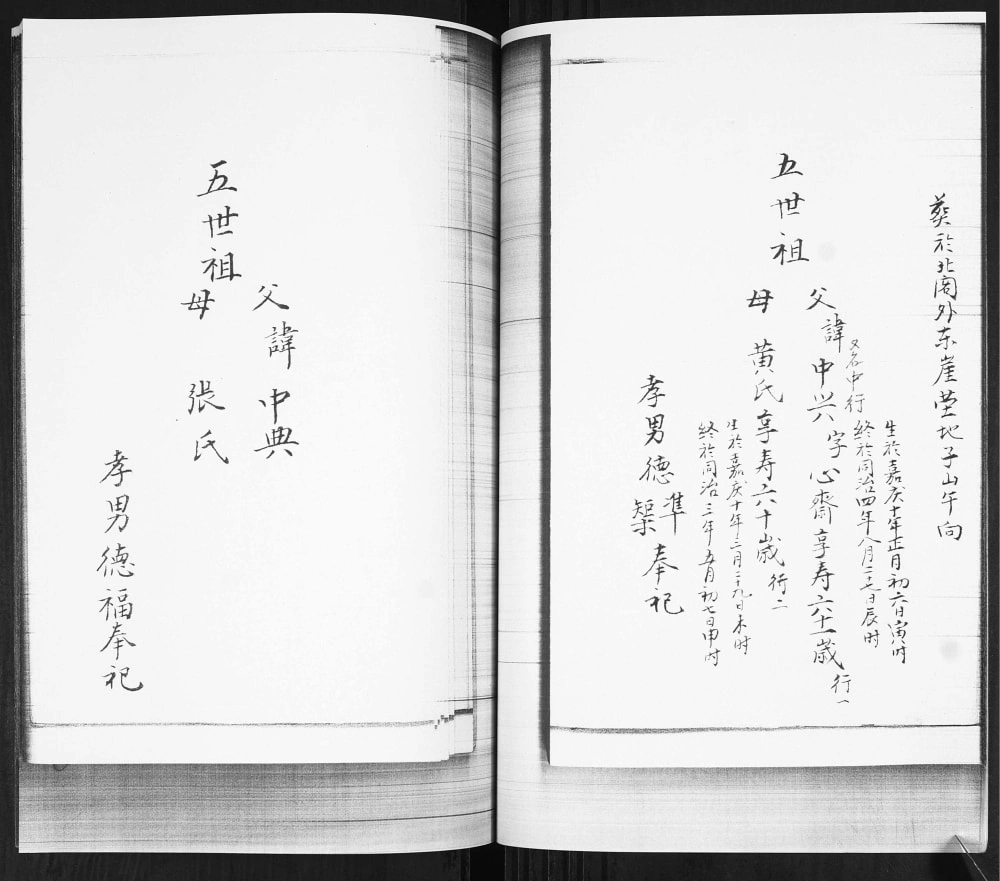 葬於北阁外东崖茔地子山午向
五世祖
生於嘉庆十年正月初六日寅时
终於同治四年八月二十七日辰时
又名中行
父諱中兴字心齋享寿六十一歲行一
母黄氏享寿六十歲行二
生於嘉庆十年三月二十九日未时
终於同治三年五月初七日申时
孝男德準榘奉祀
五世祖
父諱中典
母張氏
孝男德福奉祀